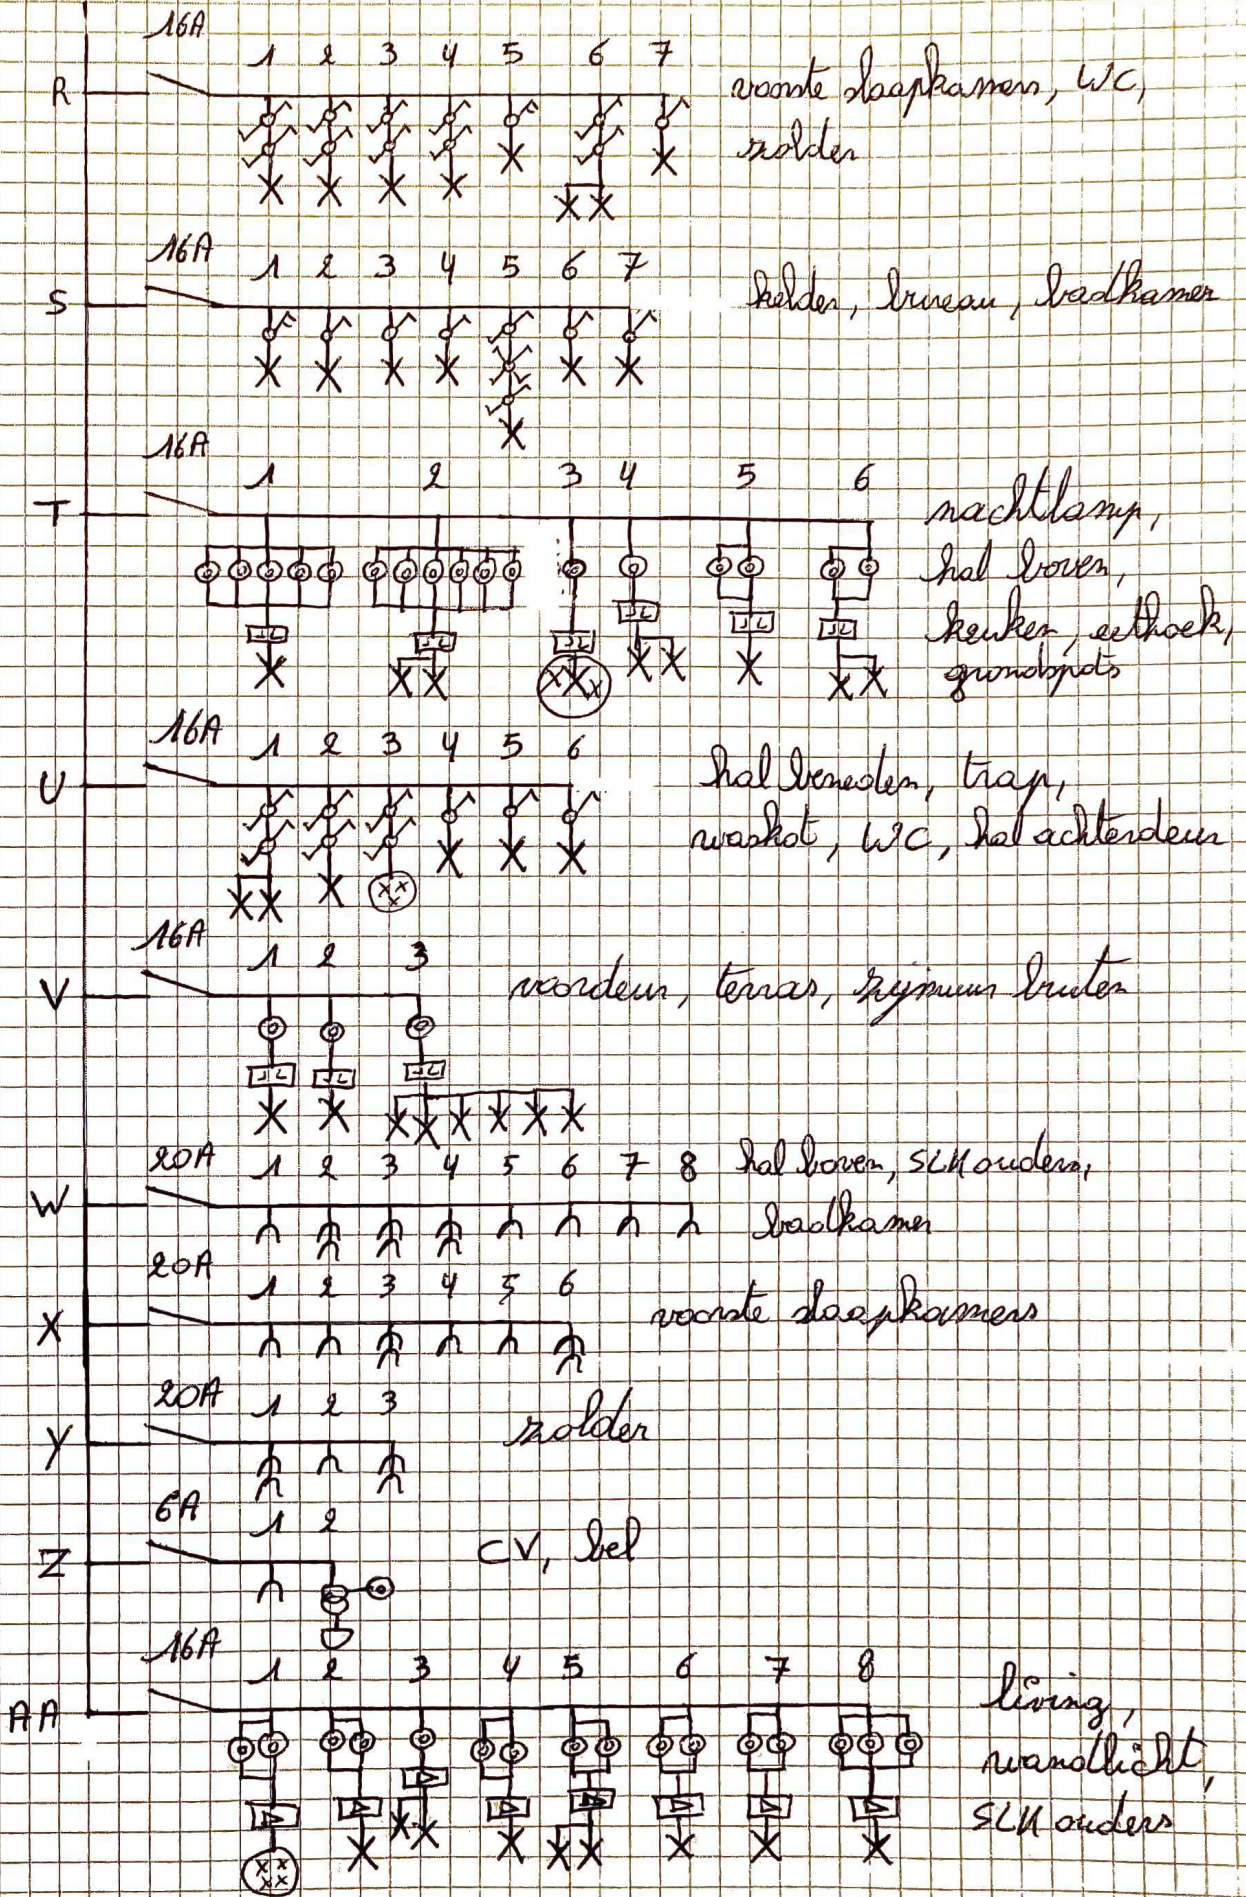 16A
1 2 3 4 5 6 7
R
voorste slaapkamers, WC,
zolder
16A
1 2 3 4 5 6 7
S
kelder, bureau, badkamer
16A
1 2 3 4 5 6
T
nachtlamp,
hal boven,
keuken, eethoek,
grondspots
16A
1 2 3 4 5 6
U
hal beneden, trap,
waskot, WC, hal achterdeur
16A
1 2 3
V
voordeur, terras, zijmuur buiten
20A
1 2 3 4 5 6 7 8
W
hal boven, SLK ouders,
badkamer
20A
1 2 3 4 5 6
X
voorste slaapkamers
20A
1 2 3
Y
zolder
6A
1 2
Z
CV, bel
16A
1 2 3 4 5 6 7 8
AA
living,
wandlicht,
SLK ouders